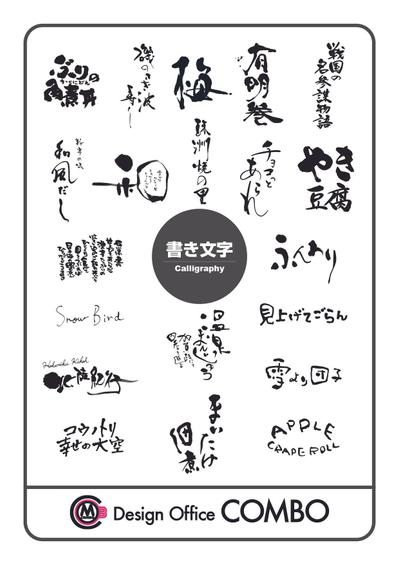 ぶりの
角煮丼
磯のさざ波
寿し
梅
有明巻
戦国の
名参謀物語
和風だし
和
珠洲焼の里
チョコっと
あられ
やき
豆腐
書き文字
Calligraphy
ふんわり
Snow Bird
温泉
まんじゅう
見上げてごらん
Hokuriku Kikō
北陸紀行
雪より団子
コウノトリ
幸せの大空
まいたけ
佃煮
APPLE
CRAPE ROLL
Design Office COMBO